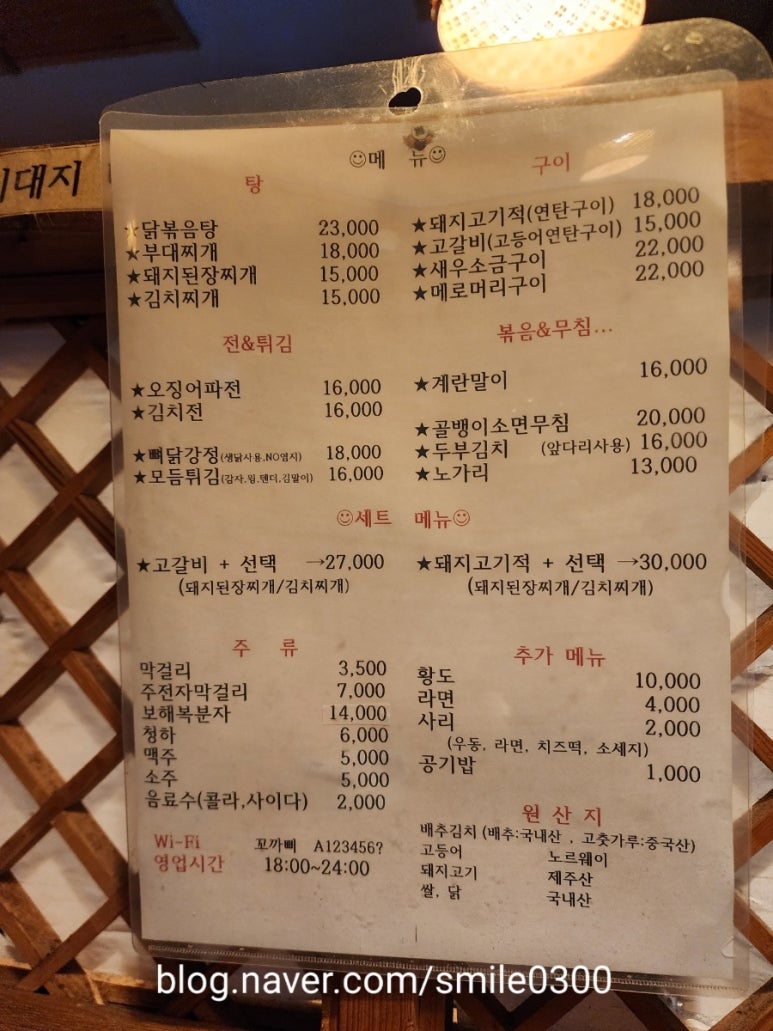 이대지
☺메 뉴☺
탕
★닭볶음탕 23,000
★부대찌개 18,000
★돼지된장찌개 15,000
★김치찌개 15,000
구이
★돼지고기적(연탄구이) 18,000
★고갈비(고등어연탄구이) 15,000
★새우소금구이 22,000
★메로머리구이 22,000
전&튀김
★오징어파전 16,000
★김치전 16,000
★뼈닭강정(생닭사용,NO염지) 18,000
★모듬튀김(감자.윙.텐더.김말이) 16,000
볶음&무침...
★계란말이 16,000
★골뱅이소면무침 20,000
★두부김치 (앞다리사용) 16,000
★노가리 13,000
☺세트 메뉴☺
★고갈비 + 선택 →27,000
(돼지된장찌개/김치찌개)
★돼지고기적 + 선택 →30,000
(돼지된장찌개/김치찌개)
주 류
막걸리 3,500
주전자막걸리 7,000
보해복분자 14,000
청하 6,000
맥주 5,000
소주 5,000
음료수(콜라,사이다) 2,000
Wi-Fi 꼬까삐 A123456?
영업시간 18:00~24:00
추가 메뉴
황도 10,000
라면 4,000
사리 2,000
(우동, 라면, 치즈떡, 소세지)
공기밥 1,000
원 산 지
배추김치 (배추:국내산 , 고춧가루:중국산)
고등어 노르웨이
돼지고기 제주산
쌀, 닭 국내산
blog.naver.com/smile0300